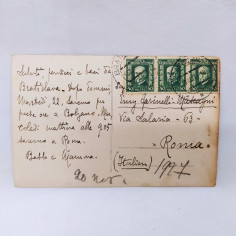 Saluti, pensieri e baci da
Bratislava. Dopo domani
Martedì, 22, saremo per
poche ore a Bolzano. Mer
coledì mattina alle 9.05
saremo a Roma.
Babbo e Mamma.
Via Salaria - 63 -
Roma
(Italien)
1927